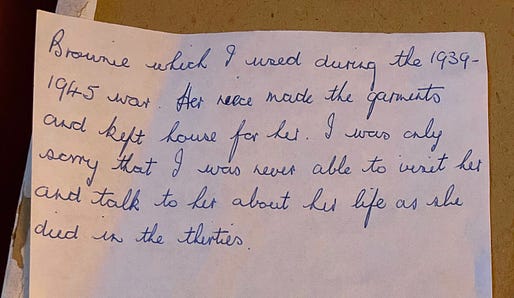 Brownie which I used during the 1939-
1945 war. Her neice made the garments
and kept house for her. I was only
sorry that I was never able to visit her
and talk to her about her life as she
died in the thirties.